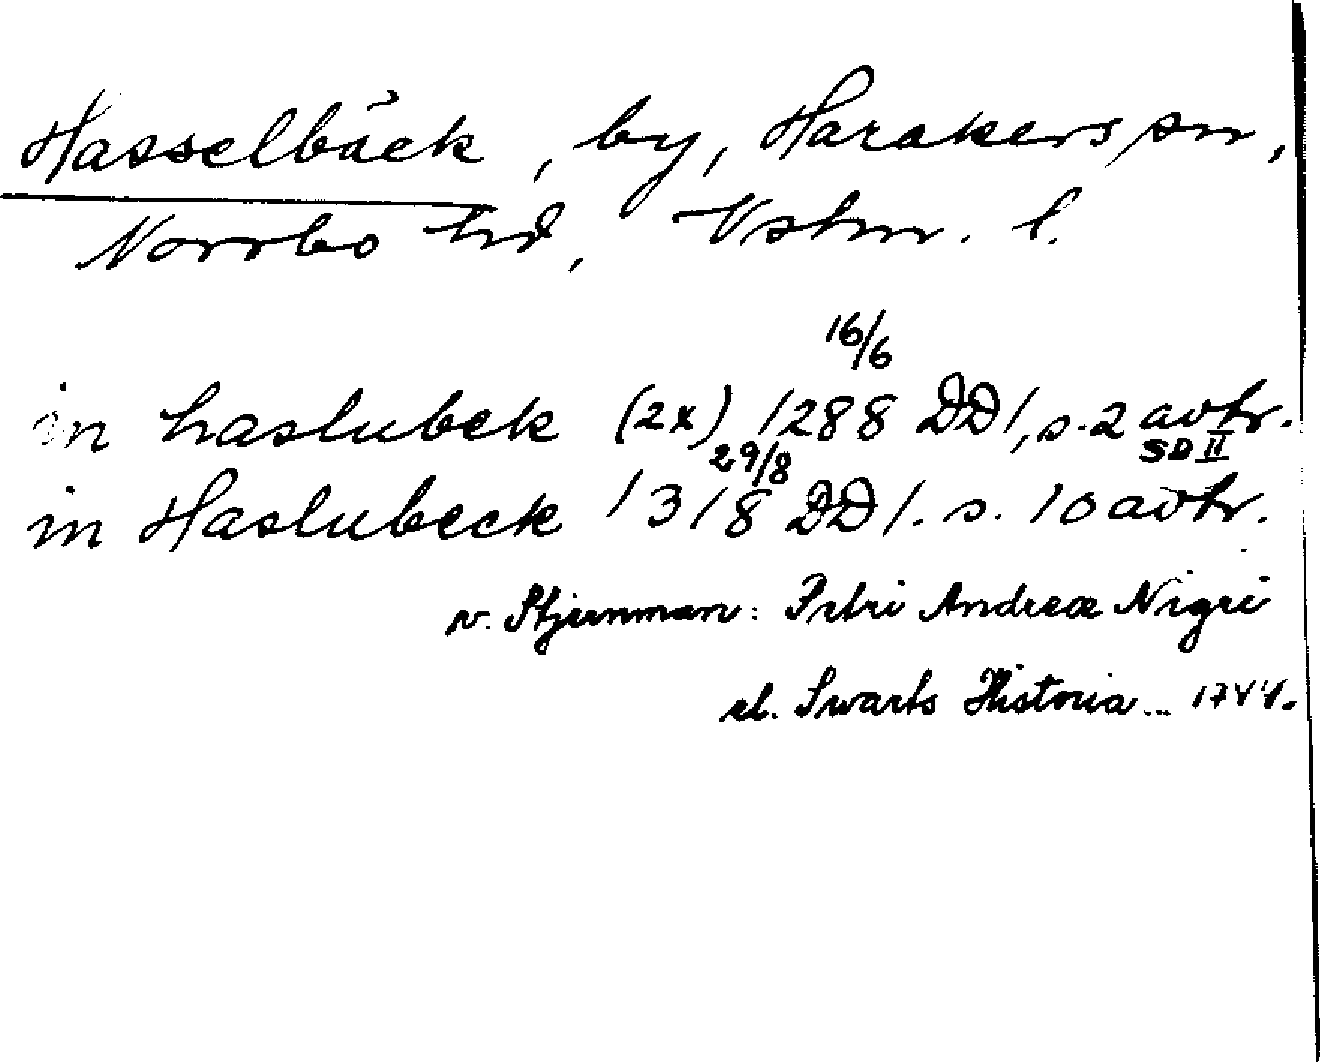 Hasselbäck, by, Harakers sn,
Norrbo hd, Vstm. l.
16/6
in haslubek (2x) 1288 DD1, s. 2 avtr.
SD II
29/8
in Haslubeck 1318 DD 1. s. 10 avtr.
v. Stjernman: Petri Andreæ Nigri
el. Swarts Historia... 1744.